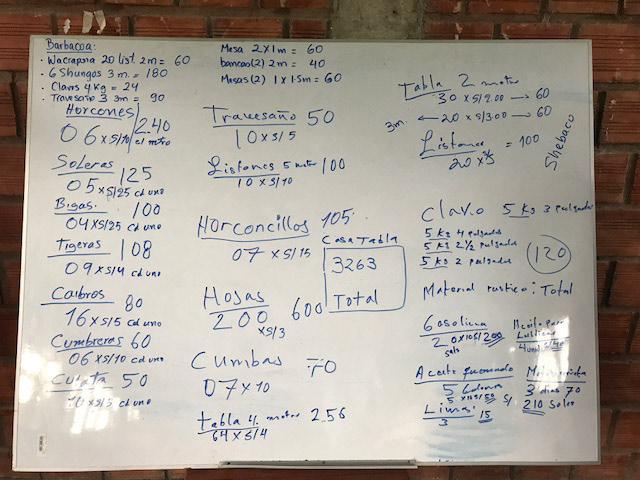 Barbacoa:
• Wacrapana 20 list. 2m = 60
• 6 Shungos 3 m. = 180
• Clavos 4 kg = 24
• Travesaño 3 3m = 90
Horcones 240
06 x S/10 el metro
Soleras 125
05 x S/25 cd uno
Bigas. 100
04 x S/25 cd uno
Tigeras 108
09 x S/4 cd uno
Caibros 80
16 x S/5 cd uno
Cumbreras 60
06 x S/10 cd uno
Culata 50
10 x S/5 cd uno
Mesa 2 x 1m = 60
bancos(2) 2m = 40
Mesas(2) 1 x 1.5m = 60
Travesaño 50
10 x S/5
Listones 5 metro 100
10 x S/10
Horconcillos 105.
07 x S/15
Casa Tabla
3263
Total
Hojas 600
200 x S/3
Cumbas 70
07 x 10
tabla 4. metro 256
64 x S/4
Tabla 2 metro
30 x S/2.00 → 60
3m. ← 20 x S/3.00 → 60
Listones = 100
20 x 5
Shebaco
Clavo 5 Kg 3 pulgadas
5 Kg 4 pulgadas
5 Kg 2 1/2 pulgadas
5 Kg 2 pulgadas
120
Material rustico: Total
Gasolina
20 x 10 S/ 200
Aceite para
Aceite quemado
Limas:
3 15
3 dias 70
210 Soles